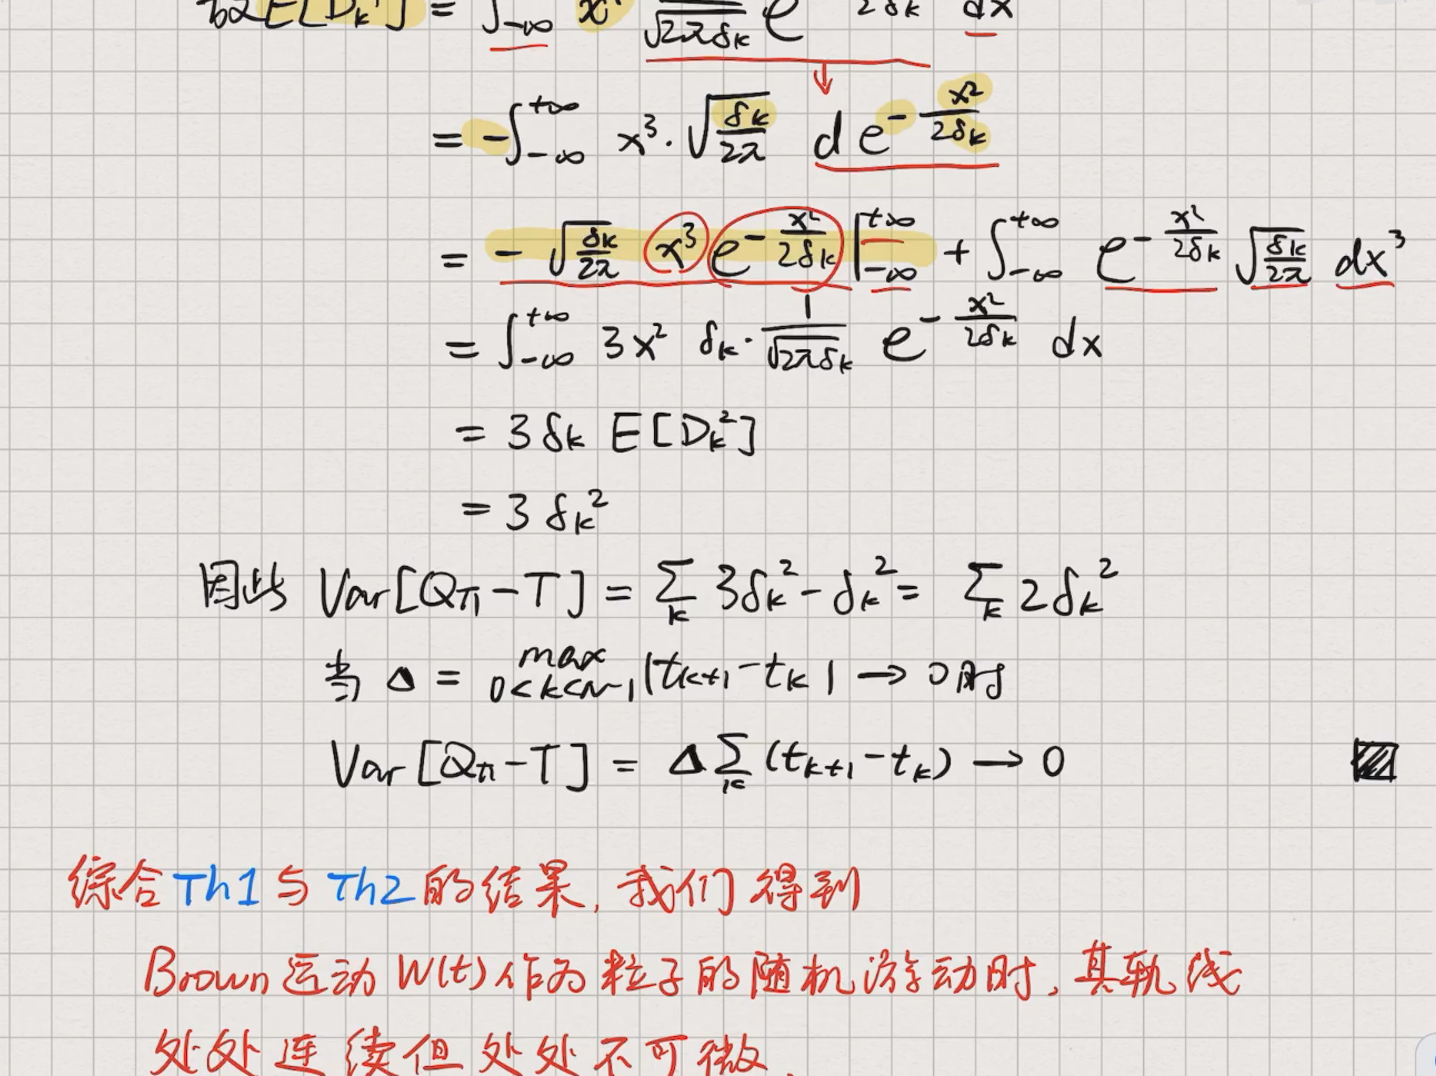 故 E[D_k^4] = ∫_{-∞} x^4 1/√(2πδ_k) e^{-x^2/2δ_k} dx
= -∫_{-∞}^{+∞} x^3 · √(δ_k/2π) d e^{-x^2/2δ_k}
= -√(δ_k/2π) x^3 e^{-x^2/2δ_k} |_{-∞}^{+∞} + ∫_{-∞}^{+∞} e^{-x^2/2δ_k} √(δ_k/2π) dx^3
= ∫_{-∞}^{+∞} 3x^2 δ_k · 1/√(2πδ_k) e^{-x^2/2δ_k} dx
= 3δ_k E[D_k^2]
= 3δ_k^2
因此 Var[Q_π - T] = Σ_k 3δ_k^2 - δ_k^2 = Σ_k 2δ_k^2
当 Δ = max_{0<k<n-1} |t_{k+1} - t_k| → 0时
Var[Q_π - T] = Δ Σ_k (t_{k+1} - t_k) → 0
综合Th1与Th2的结果, 我们得到
Brown运动W(t)作为粒子的随机游动时, 其轨线
处处连续但处处不可微.